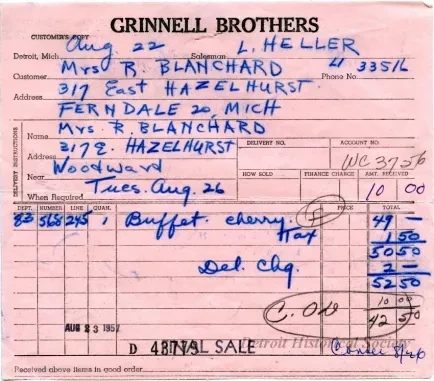 GRINNELL BROTHERS
CUSTOMER'S COPY
Detroit, Mich. Aug. 22 Salesman L. HELLER
Customer Mrs R. BLANCHARD Phone No. LI 33516
Address 317 East HAZELHURST
FERNDALE 20, MICH
DELIVERY INSTRUCTIONS
Name Mrs. R. BLANCHARD
Address 317 E. HAZELHURST DELIVERY NO. ACCOUNT NO.
Near Woodward WC 3756
When Required Tues. Aug. 26 HOW SOLD FINANCE CHARGE AMT. RECEIVED
10 00
DEPT. NUMBER LINE QUAN. PRICE TOTAL
83 568 245 1 Buffet. cherry. F 49 —
Tax 1 50
50 50
Del. Chg. 2 —
52 50
10 00
C. OD 42 50
AUG 23 1957
D 43779 FINAL SALE
Detroit Historical Society
8/26
Received above items in good order